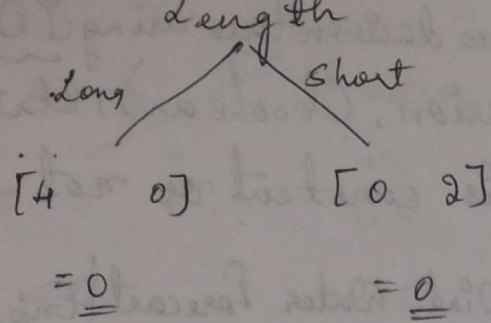 Length
Long Short
[4 0] [0 2]
= 0 = 0